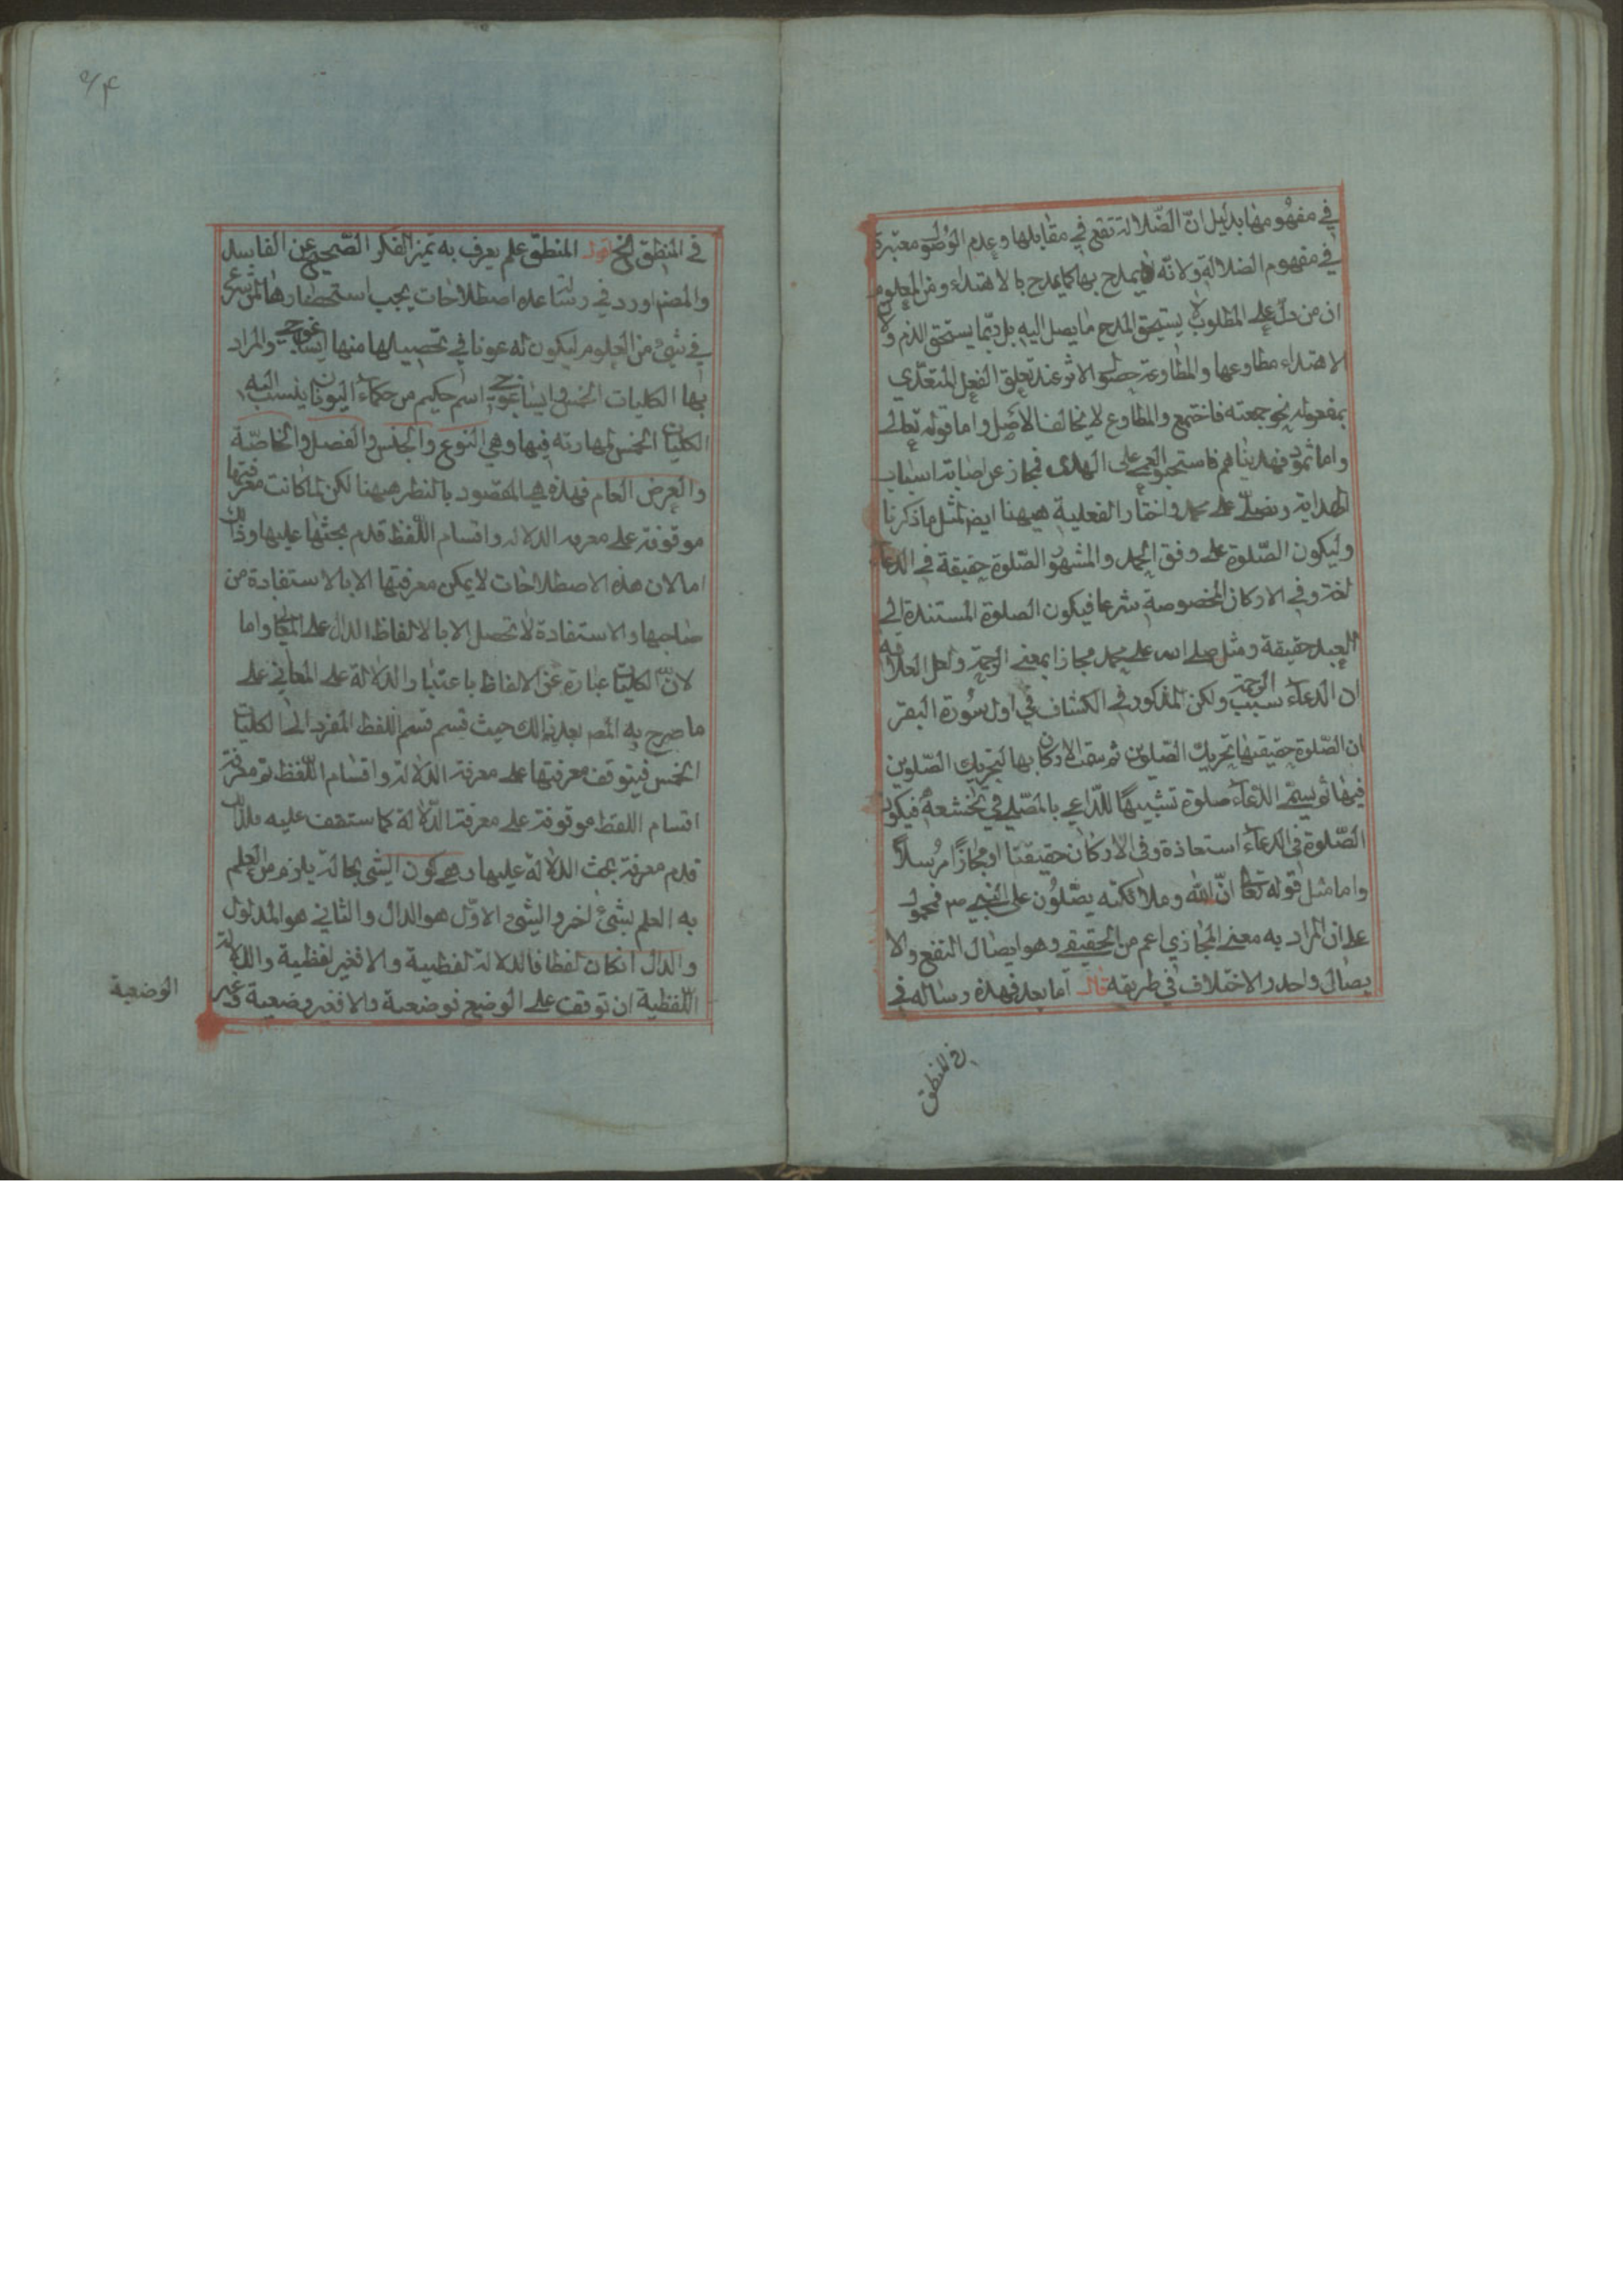 في مفهومها بدليل ان الضّلالة تقع في مقابلها وعدم الوصول معتبرة
في مفهوم الضلالة ولانه يمدح بها كما يمدح بالاهتداء ومن المعلوم
ان من دلّ على المطلوب لا يستحق المدح ما يصل اليه بل ربّما يستحق الذم ولان
الاهتداء مطاوعها والمطاوعة حصول الاثر عند تعلق الفعل المتعدّي
بمفعوله نحو جمعته فاجتمع والمطاوع لا يخالف الاصل واما قوله تعالى
واما ثمود فهديناهم فاستحبوا العمى على الهدى فمجاز عن اصابة اسباب
الهداية ونصلّي على محمد واختار الفعلية ههنا ايضا لمثل ما ذكرنا
وليكون الصّلوة على وفق الحمد والمشهور الصّلوة حقيقة في الدعاء
لغة وفي الاركان المخصوصة شرعا فيكون الصلوة المستندة الى
العبد حقيقة ومثل صلى الله على محمد مجازا بمعنى الرحمة ولعل العلاقة
ان الدعاء سبب الرحمة ولكن المذكور في الكشاف في اول سورة البقر
ان الصّلوة حقيقتها تحريك الصّلوين ثم نقلت الاركان بها لتحريك الصّلوين
فيها ثم يسمّى الدّعاء صلوة تشبيهًا للدّاعي بالمصّلي في تخشعه فيكون
الصّلوة في الدعاء استعاذة وفي الاركان حقيقتا او مجازًا مرُسلاً
واما مثل قوله تعالى انّ الله وملائكته يصّلوُن على النبي ص فمحمول
على ان المراد به معنى المجازي اعم من الحقيقي وهو ايصال النفع والا
يصال واحد والاختلاف في طريقه قال اما بعد فهذه رسالة في
في المنطق
في المنطق الخ اقول المنطق علم يعرف به تميز الفكر الصّحيح عن الفاسد
والمصنف اورد في رسالته هذه اصطلاحات يجب استحضارها لمن شرع
في شيئ من العلوم ليكون له عونا في تحصيلها منها ايساغوجي والمراد
بها الكليات الخمس وايساغوجي اسم حكيم من حكماء اليونان ينسب اليه
الكليات الخمس لمهارته فيها وهي النوع والجنس والفصل والخاصّة
والعرض العام فهذه هي المقصود بالنظر ههنا لكن لما كانت معرفتها
موقوفة على معرفة الدلالة واقسام اللّفظ قدم بحثها عليها وذلك
اما لان هذه الاصطلاحات لا يمكن معرفتها الا بالاستفادة من
صاحبها والاستفادة لا تحصل الا بالالفاظ الدال على المعاني واما
لانّ الكليات عبارة عن الالفاظ باعتبار الدلالة على المعاني على
ما صرح به المص بعد ذالك حيث قسم قسم اللفظ المفرد الى الكليات
الخمس فيتوقف معرفتها على معرفة الدلالة واقسام اللّفظ ثم معرفة
اقسام اللفظ موقوفة على معرفة الدّلالة كما ستقف عليه فلذلك
قدم معرفة بحث الدلالة عليها وهي كون الشئ بحالة يلزم من العلم
به العلم بشئ اخر والشئ الاوّل هو الدال والثاني هو المدلول
والدال ان كان لفظا فالدلالة لفظيية والا فغير لفظية والدلالة
اللّفظية ان توقف على الوضع فوضعية والا فغير وضعية وغير
الوضعية